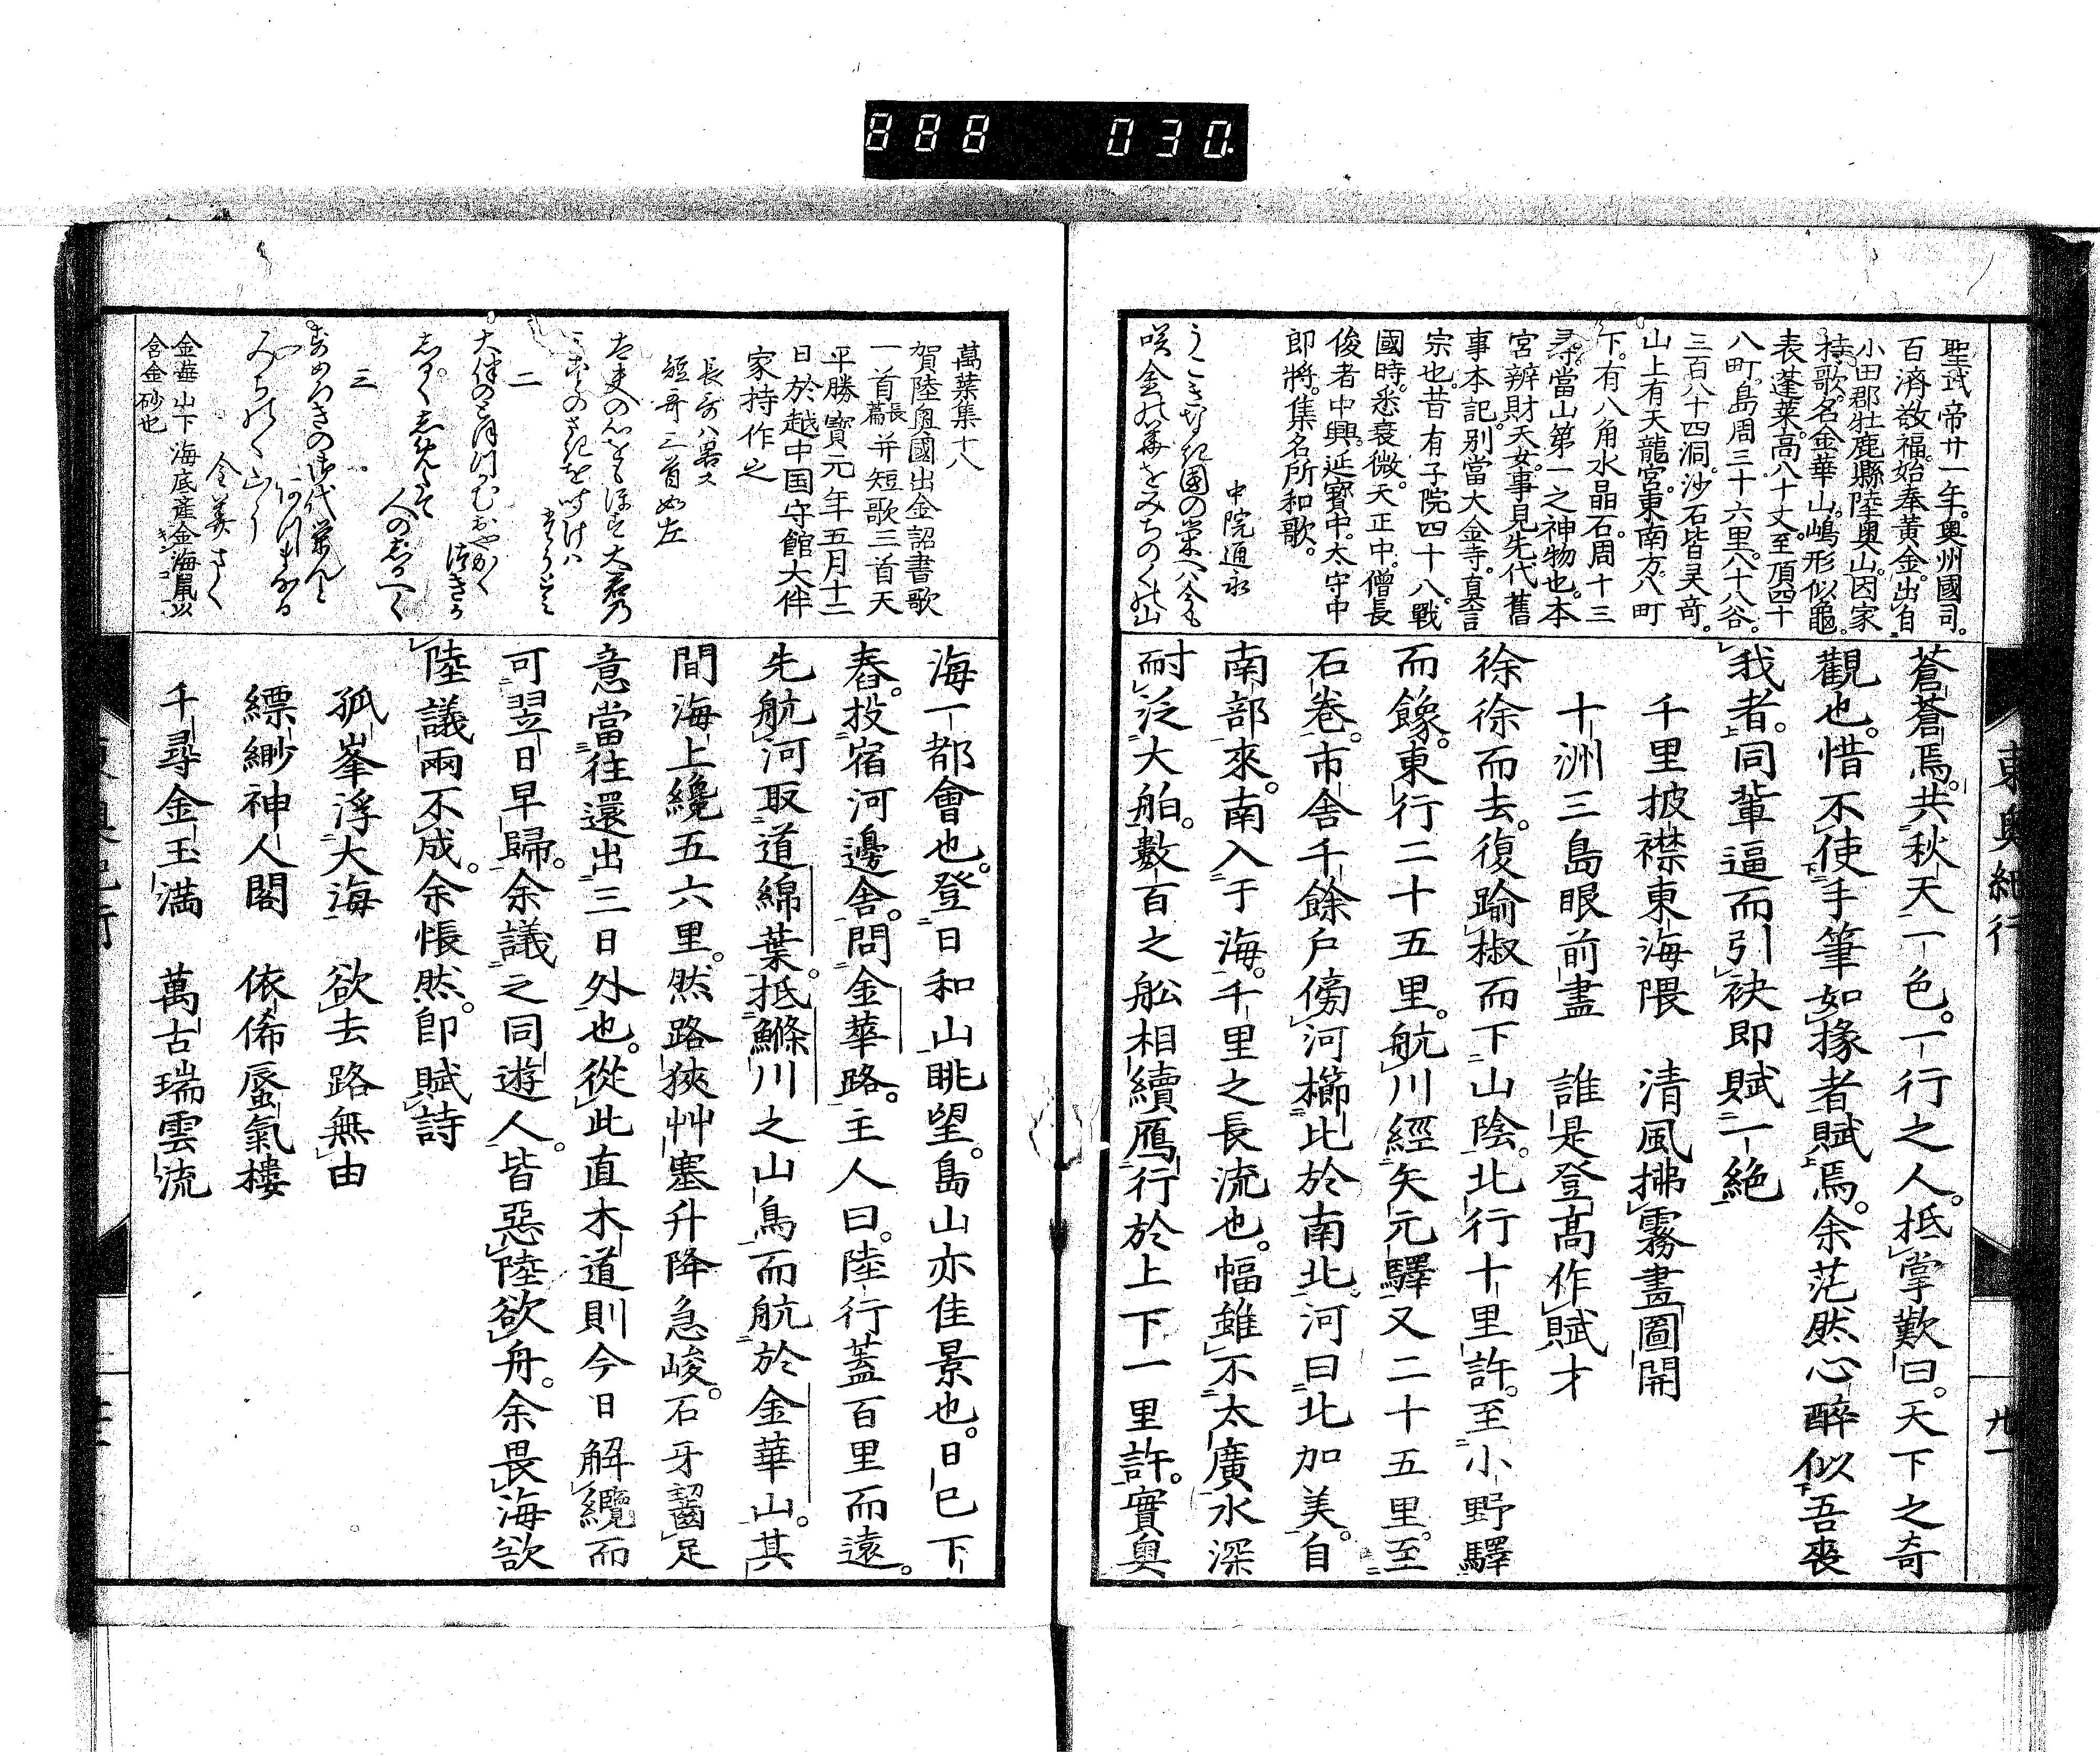 888 030.
聖武帝廿一年。奧州國司。
百濟敬福。始奉黄金。出自
小田郡牡鹿縣陸奧山。因家
持歌。名金華山。嶋形似龜。
表蓬莱。高八十丈。至頂四十
八町。島周三十六里。八十八谷。
三百八十四洞。沙石皆灵竒。
山上有天龍宮。東南方八町
下。有八角水晶石。周十三
尋。當山第一之神物也。本
宮辨財天女。事見先代舊
事本記。別當大金寺。真言
宗也。昔有子院四十八。戰
國時。悉衰微。天正中。僧長
俊者中興。延寶中。太守中
即將。集名所和歌。
中院通永
うこきなき国の栄へハ今も
咲金の華さみちのくの山
蒼蒼焉。共秋天一色。一行之人。抵掌歎曰。天下之奇
觀也。惜不使手筆如掾者賦焉。余茫然心醉似吾喪
我者。同輩逼而引袂即賦二絶
千里披襟東海隈　清風拂霧畫圖開
十洲三島眼前盡　誰是登高作賦才
徐徐而去。復踰椒而下山陰。北行十里許。至小野驛
而餯。東行二十五里。航川經矢元驛又二十五里。至
石巻。市舍千餘戸傍河櫛比於南北。河曰北加美。自
南部來。南入于海。千里之長流也。幅雖不太廣水深
耐泛大舶。數百之舩相續鴈行於上下一里許。實奧
東奧紀行
卅一
萬葉集十八
賀陸奧國出金詔書歌
一首長篇并短歌三首天
平勝寶元年五月十二
日於越中国守館大伴
家持作之
長哥ハ畧ス
短哥三首如左
二
三
金華山下海底産金海鼠以
含金砂也
海一都會也。登日和山眺望。島山亦佳景也。日已下
舂。投宿河邊舍。問金華路。主人曰。陸行蓋百里而遠。
先航河取道綿葉。抵鰷川之山鳥而航於金華山。其
間海上纔五六里。然路狹艸塞升降急峻。石牙齧足
意當往還出三日外也。從此直木道則今日解纜而
可翌日早歸。余議之同遊人。皆惡陸欲舟。余畏海欲
陸議兩不成。余悵然。卽賦詩
孤峯浮大海　欲去路無由
縹緲神人閣　依俙蜃氣樓
千尋金玉満　萬古瑞雲流